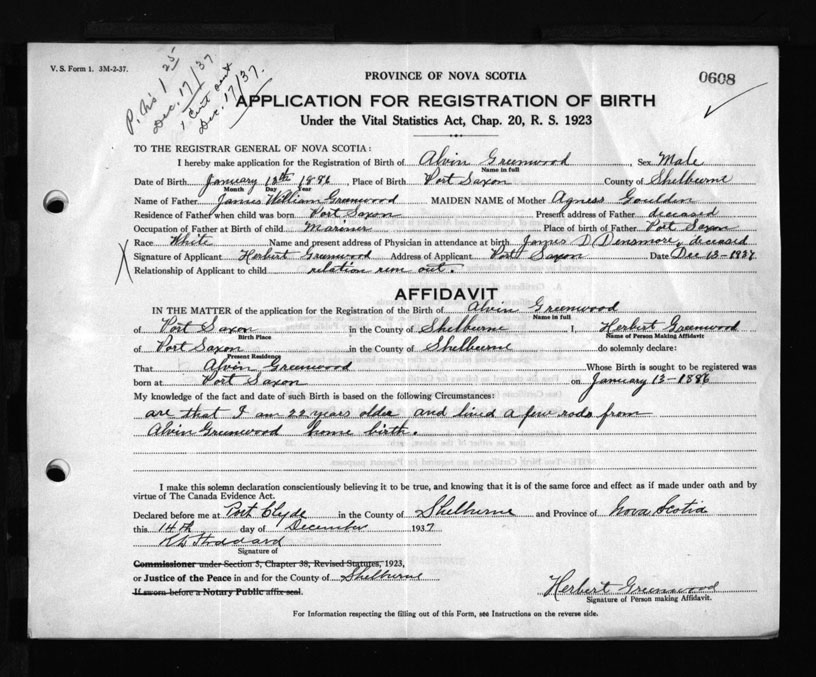 V. S. Form 1. 3M-2-37.
P. No 1 25
Dec. 17/37
1 Cert sent
Dec. 17/37.
0608
PROVINCE OF NOVA SCOTIA
APPLICATION FOR REGISTRATION OF BIRTH
Under the Vital Statistics Act, Chap. 20, R. S. 1923
TO THE REGISTRAR GENERAL OF NOVA SCOTIA:
I hereby make application for the Registration of Birth of Alvin Greenwood, Sex Male
Name in full
Date of Birth January 13th 1886, Place of Birth Port Saxon County of Shelburne
Month Day Year
Name of Father James William Greenwood MAIDEN NAME of Mother Agness Gouldin
Residence of Father when child was born Port Saxon Present address of Father deceased
Occupation of Father at Birth of child Mariner Place of birth of Father Port Saxon
Race White Name and present address of Physician in attendance at birth James D Densmore, deceased
Signature of Applicant Herbert Greenwood Address of Applicant Port Saxon Date Dec 13-1937
Relationship of Applicant to child relation rem out.
AFFIDAVIT
IN THE MATTER of the application for the Registration of the Birth of Alvin Greenwood
Name in full
of Port Saxon in the County of Shelburne I, Herbert Greenwood
Birth Place Name of Person Making Affidavit
of Port Saxon in the County of Shelburne do solemnly declare:
Present Residence
That Alvin Greenwood Whose Birth is sought to be registered was
born at Port Saxon on January 13-1886
My knowledge of the fact and date of such Birth is based on the following Circumstances:
are that I am 22 years older and lived a few rods from
Alvin Greenwood home birth.
I make this solemn declaration conscientiously believing it to be true, and knowing that it is of the same force and effect as if made under oath and by
virtue of The Canada Evidence Act.
Declared before me at Port Clyde in the County of Shelburne and Province of Nova Scotia
this 14th day of December 1937
Stoddard
Signature of
Commissioner under Section 5, Chapter 38, Revised Statutes, 1923,
or Justice of the Peace in and for the County of Shelburne
If sworn before a Notary Public affix seal.
Herbert Greenwood
Signature of Person making Affidavit.
For Information respecting the filling out of this Form, see Instructions on the reverse side.